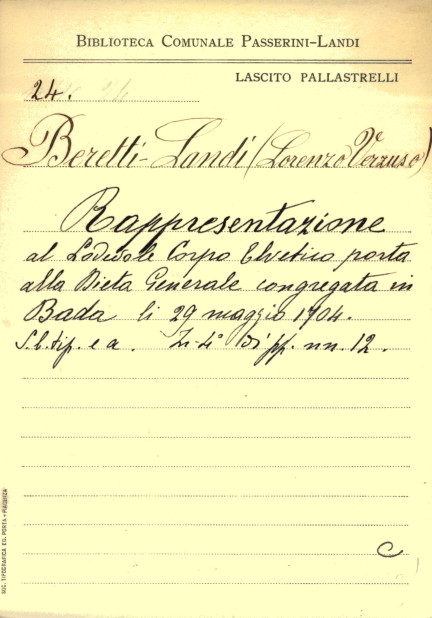 BIBLIOTECA COMUNALE PASSERINI-LANDI
LASCITO PALLASTRELLI
24.
Beretti-Landi (Lorenzo Verzuso)
Rappresentazione
al Lodevole Corpo Elvetico porta
alla Dieta Generale congregata in
Bada li 29 maggio 1704.
S.l. tip. e a. In-4° di pp. nn. 12.
C
SOC. TIPOGRAFICA ED. PORTA - PIACENZA